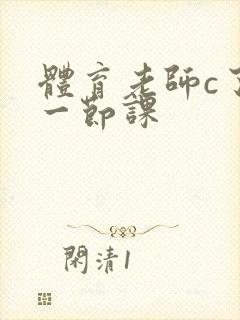 體育老師c了
一節課
閑清1